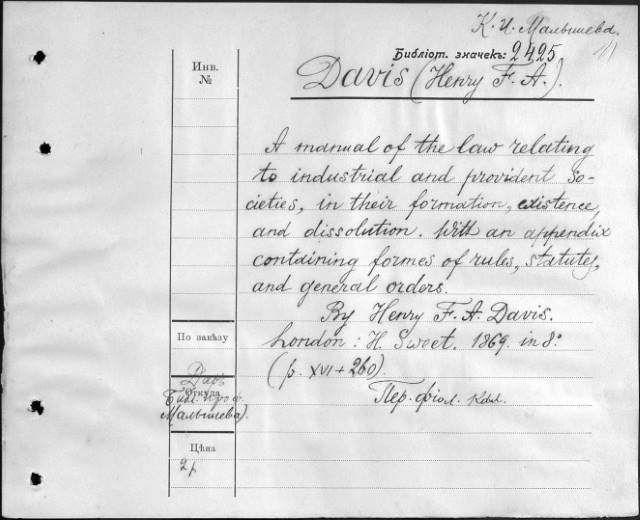 К. И. Малышева.
Библіот. значекъ: 2425
Инв.
№
Davis (Henry F. A.).
A manual of the law relating
to industrial and provident so-
cieties, in their formation, existence,
and dissolution. With an appendix
containing formes of rules, statutes,
and general orders.
By Henry F. A. Davis.
По заказу
London: H. Sweet. 1869. in 8º
(p. XVI + 260).
Даръ
Откуда
Библ. проф.
Малышева).
Пер.
Цѣна
2 р.